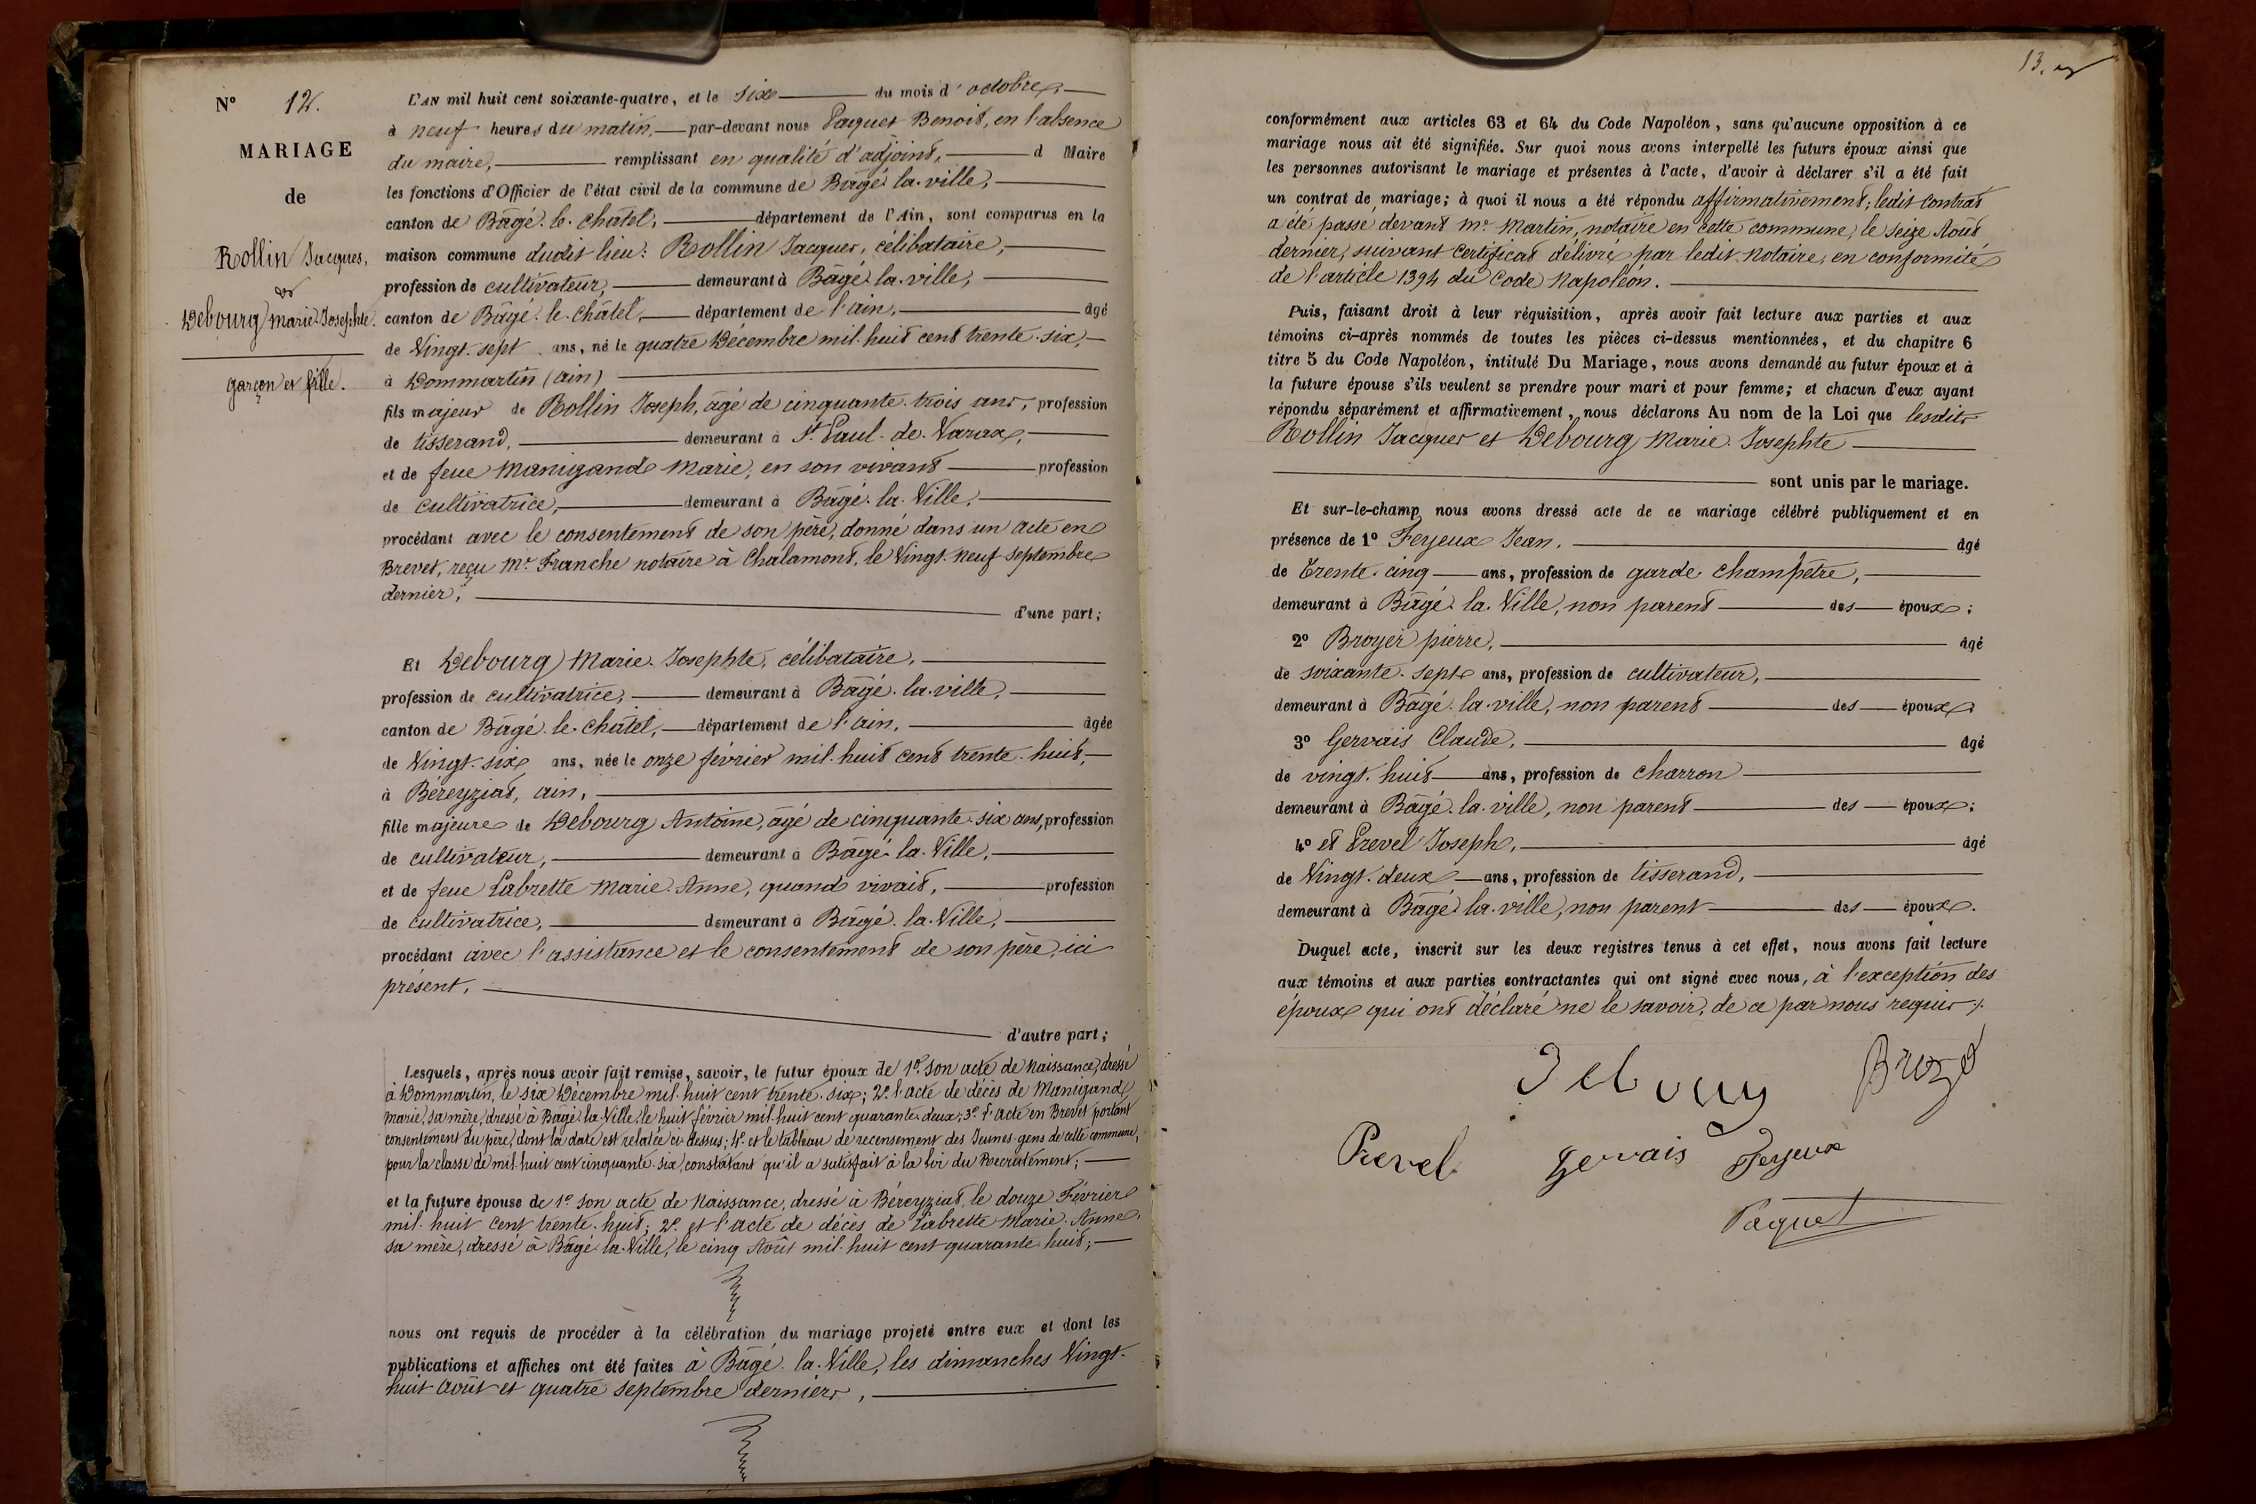 N° 12.
MARIAGE
de
Rollin Jacques,
et
Debourg Marie-Josephte.
garçon et fille.
L'AN mil huit cent soixante-quatre, et le six du mois d'octobre,
à neuf heures du matin, par-devant nous Paquet Benoit, en l'absence
du maire, remplissant en qualité d'adjoint, d Maire
les fonctions d'Officier de l'état civil de la commune de Bâgé-la-ville,
canton de Bâgé-le-châtel, département de l'Ain, sont comparus en la
maison commune dudit lieu: Rollin Jacques, célibataire,
profession de cultivateur, demeurant à Bâgé-la-ville,
canton de Bâgé-le-châtel, département de l'ain, âgé
de Vingt-sept ans, né le quatre Décembre mil-huit cent trente-six,
à Dommartin (ain)
fils majeur de Rollin Joseph, âgé de cinquante-trois ans, profession
de tisserand, demeurant à St Paul-de-Varax,
et de feue Manigand Marie, en son vivant profession
de cultivatrice, demeurant à Bâgé-la-Ville,
procédant avec le consentement de son père, donné dans un acte en
Brevet, reçu Me Franche notaire à Chalamont, le Vingt-neuf septembre
dernier, d'une part;
Et Debourg Marie-Josephte, célibataire,
profession de cultivatrice, demeurant à Bâgé-la-ville,
canton de Bâgé-le-châtel, département de l'ain, âgée
de Vingt-six ans, née le onze février mil-huit cent trente-huit,
à Béreyziat, ain,
fille majeure de Debourg Antoine, âgé de cinquante-six ans, profession
de cultivateur, demeurant à Bâgé-la-Ville,
et de feue Labrette Marie-Anne, quand vivait, profession
de cultivatrice, demeurant à Bâgé-la-Ville,
procédant avec l'assistance et le consentement de son père, ici
présent, d'autre part;
Lesquels, après nous avoir fait remise, savoir, le futur époux de 1° son acte de Naissance, dressé
à Dommartin, le six Décembre mil-huit cent trente-six; 2° l'acte de décès de Manigand
Marie, sa mère, dressé à Bâgé-la-Ville, le huit février mil-huit cent quarante-deux; 3° l'acte en Brevet portant
consentement du père, dont la date est relatée ci-dessus; 4° et le tableau de recensement des Jeunes-gens de cette commune,
pour la classe de mil-huit cent cinquante-six, constatant qu'il a satisfait à la loi du Recrutement;
et la future épouse de 1° son acte de Naissance, dressé à Béreyziat, le douze Février
mil-huit cent trente-huit; 2° et l'acte de décès de Labrette Marie-Anne,
sa mère, dressé à Bâgé-la-Ville, le cinq Août mil-huit cent quarante-huit;
nous ont requis de procéder à la célébration du mariage projeté entre eux et dont les
publications et affiches ont été faites à Bâgé-la-Ville, les dimanches Vingt-
huit août et quatre septembre derniers,
13.
conformément aux articles 63 et 64 du Code Napoléon, sans qu'aucune opposition à ce
mariage nous ait été signifiée. Sur quoi nous avons interpellé les futurs époux ainsi que
les personnes autorisant le mariage et présentes à l'acte, d'avoir à déclarer s'il a été fait
un contrat de mariage; à quoi il nous a été répondu affirmativement; ledit contrat
a été passé devant Me Martin, notaire en cette commune, le seize Août
dernier, suivant certificat délivré par ledit notaire, en conformité
de l'article 1394 du Code Napoléon.
Puis, faisant droit à leur réquisition, après avoir fait lecture aux parties et aux
témoins ci-après nommés de toutes les pièces ci-dessus mentionnées, et du chapitre 6
titre 5 du Code Napoléon, intitulé Du Mariage, nous avons demandé au futur époux et à
la future épouse s'ils veulent se prendre pour mari et pour femme; et chacun d'eux ayant
répondu séparément et affirmativement, nous déclarons Au nom de la Loi que lesdits
Rollin Jacques et Debourg Marie-Josephte
sont unis par le mariage.
Et sur-le-champ nous avons dressé acte de ce mariage célébré publiquement et en
présence de 1° Feyeux Jean, âgé
de Trente-cinq ans, profession de garde champêtre,
demeurant à Bâgé-la-Ville, non parent des époux;
2° Broyer pierre, âgé
de soixante-sept ans, profession de cultivateur,
demeurant à Bâgé-la-ville, non parent des époux;
3° Gervais Claude, âgé
de vingt-huit ans, profession de charron
demeurant à Bâgé-la-ville, non parent des époux;
4° et Prevel Joseph, âgé
de Vingt-deux ans, profession de tisserand,
demeurant à Bâgé-la-ville, non parent des époux.
Duquel acte, inscrit sur les deux registres tenus à cet effet, nous avons fait lecture
aux témoins et aux parties contractantes qui ont signé avec nous, à l'exception des
époux qui ont déclaré ne le savoir, de ce par nous requis.
Debourg
Prevel Gervais Feyeux
Paquet